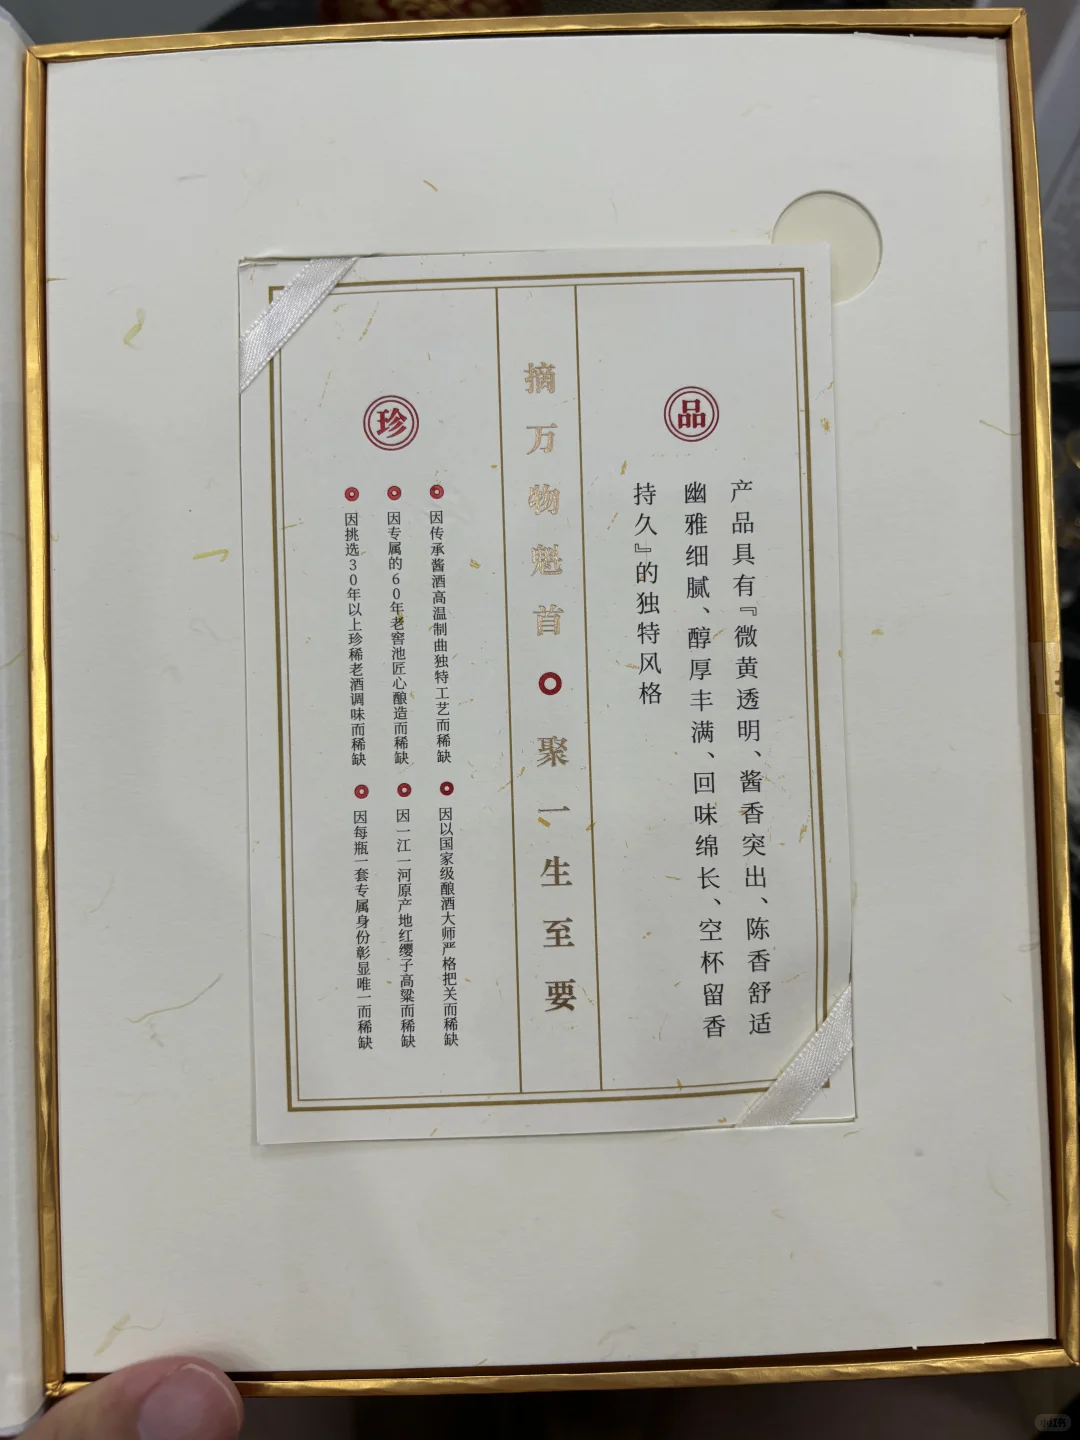 品
产品具有『微黄透明、酱香突出、陈香舒适
幽雅细腻、醇厚丰满、回味绵长、空杯留香
持久』的独特风格
摘万物魁首
聚一生至要
珍
因传承酱酒高温制曲独特工艺而稀缺
因专属的60年老窖池匠心酿造而稀缺
因挑选30年以上珍稀老酒调味而稀缺
因以国家级酿酒大师严格把关而稀缺
因一江一河原产地红缨子高粱而稀缺
因每瓶一套专属身份彰显唯一而稀缺
小红书